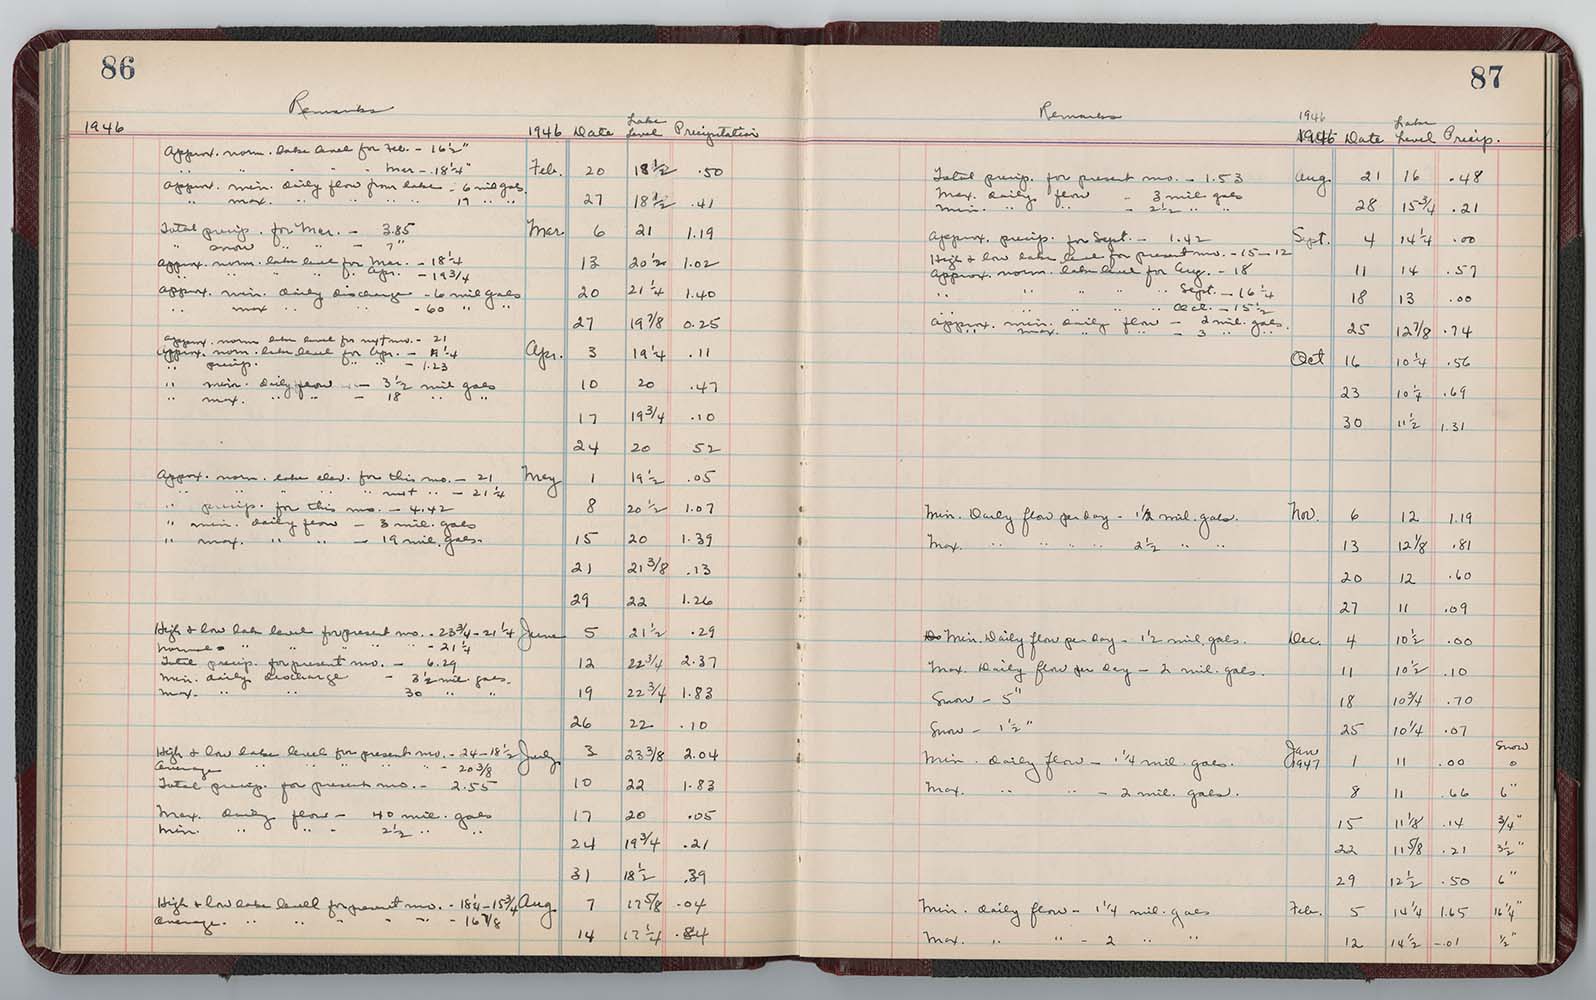 86
Remarks
1946 1946 Date Lake Level Precipitation
Approx. norm. lake level for Feb. - 16 1/2"
" " " " " Mar - 18 1/4" Feb. 20 18 1/2 .50
Approx. min. daily flow from lake - 6 mil gals.
" max. " " " " 19 " " 27 18 1/2 .41
Total precip. for Mar. - 3.85 Mar. 6 21 1.19
" snow " " - 7"
Approx. norm. lake level for Mar. - 18 1/4 13 20 1/2 1.02
" " " " " Apr. - 19 3/4
Approx. min. daily discharge - 6 mil gals 20 21 1/4 1.40
" max " " - 60 " "
27 19 7/8 0.25
Approx. norm lake level for next mo. - 21
Approx. norm. lake level for Apr. - 1/4 Apr. 3 19 1/4 .11
" precip. " " - 1.23
" min. daily flow - 3 1/2 mil gals 10 20 .47
" max. " " - 18 " "
17 19 3/4 .10
24 20 52
Approx. norm. lake elev. for this mo. - 21 May 1 19 1/2 .05
" " " " " next " - 21 1/4
" precip. for this mo. - 4.42 8 20 1/2 1.07
" min. daily flow - 3 mil. gals
" max. " " - 19 mil. gals. 15 20 1.39
21 21 3/8 .13
29 22 1.26
High & low lake level for present mo. - 23 3/4 - 21 1/4 June 5 21 1/2 .29
Normal " " " " " - 21 1/4
Total precip. for present mo. - 6.29 12 22 3/4 2.37
Min. daily discharge - 3 1/2 mil. gals.
Max. " " 30 " " 19 22 3/4 1.83
26 22 .10
High & low lake level for present mo. - 24 - 18 1/2 July 3 23 3/8 2.04
Average " " " " " - 20 3/8
Total precip. for present mo. - 2.55 10 22 1.83
Max. daily flow - 40 mil. gals 17 20 .05
Min. " " - 2 1/2 " "
24 19 3/4 .21
31 18 1/2 .39
High & low lake level for present mo. - 18 1/4 - 15 3/4 Aug 7 17 5/8 .04
Average. " " " " " - 16 7/8
14 17 1/4 .84
87
Remarks
1946
1946 Date Lake Level Precip.
Total precip. for present mo. - 1.53 Aug. 21 16 .48
Max. daily flow - 3 mil. gals
Min. " " - 2 1/2 " " 28 15 3/4 .21
Approx. precip. for Sept. - 1.42 Sept. 4 14 1/4 .00
High & low lake level for present mo. - 15 - 12
Approx. norm. lake level for Aug. - 18 11 14 .57
" " " " " Sept. - 16 1/4 18 13 .00
" " " " " Oct. - 15 1/2
Approx. min. daily flow - 2 mil. gals. 25 12 7/8 .74
" max. " " - 3 " "
Oct 16 10 1/4 .56
23 10 1/4 .69
30 11 1/2 1.31
Min. Daily flow per day - 1 1/2 mil. gals. Nov. 6 12 1.19
Max. " " " " 2 1/2 " " 13 12 1/8 .81
20 12 .60
27 11 .09
Min. Daily flow per day - 1 1/2 mil. gals. Dec. 4 10 1/2 .00
Max. Daily flow per day - 2 mil. gals. 11 10 1/2 .10
Snow - 5" 18 10 3/4 .70
Snow - 1 1/2" 25 10 1/4 .07
Snow
Min. daily flow - 1 1/4 mil. gals. Jan 1947 1 11 .00 0
Max. " " - 2 mil. gals. 8 11 .66 6"
15 11 1/8 .14 3/4"
22 11 5/8 .21 3 1/2"
29 12 1/2 .50 6"
Min. daily flow - 1 1/4 mil. gals Feb. 5 14 1/4 1.65 16 1/4"
Max. " " - 2 " " 12 14 1/2 .01 1/2"